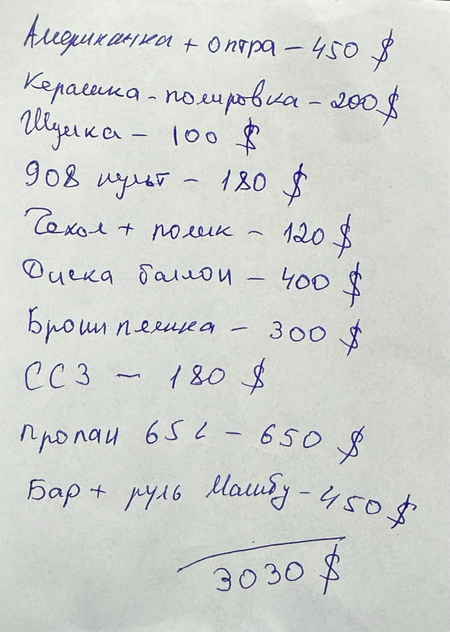 Американка + оптра - 450 $
Керамика - полировка - 200 $
Шумка - 100 $
908 пульт - 180 $
Чехол + полик - 120 $
Диска баллон - 400 $
Брон пленка - 300 $
ССЗ - 180 $
Пропан 65 L - 650 $
Бар + руль Малибу - 450 $
3030 $